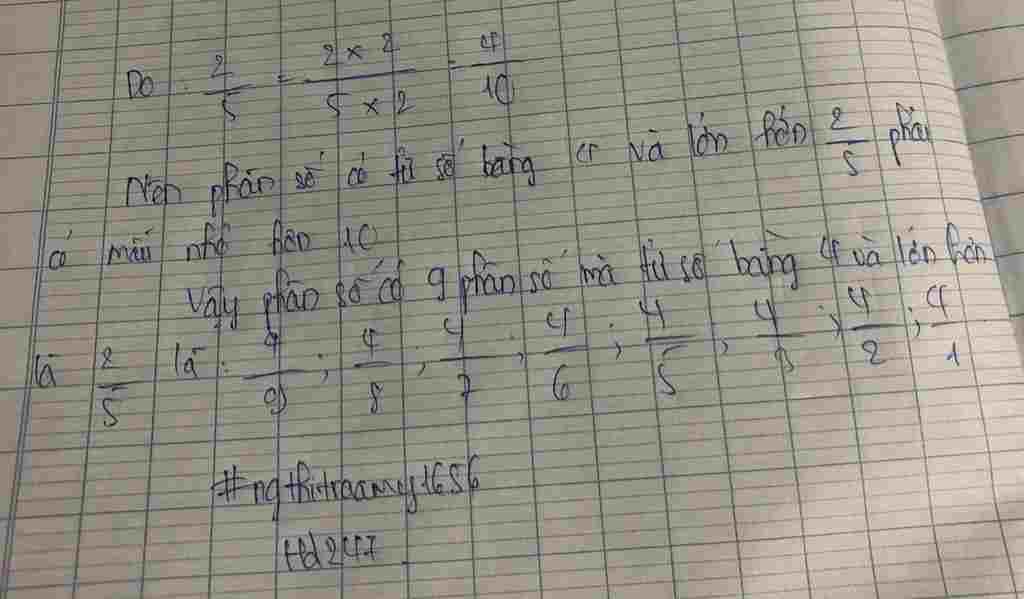 Do : 2/5 = 2 × 2 / 5 × 2 = 4/10
Nên phân số có tử số bằng 4 và lớn hơn 2/5 phải
có mẫu nhỏ hơn 10
Vậy phân số có 9 phân số mà tử số bằng 4 và lớn hơn
là 2/5 là : 4/9 ; 4/8 ; 4/7 ; 4/6 ; 4/5 ; 4/3 ; 4/2 ; 4/1
#ngthitraamy1656
Hd247